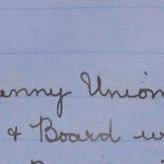 enny Union
& Board w